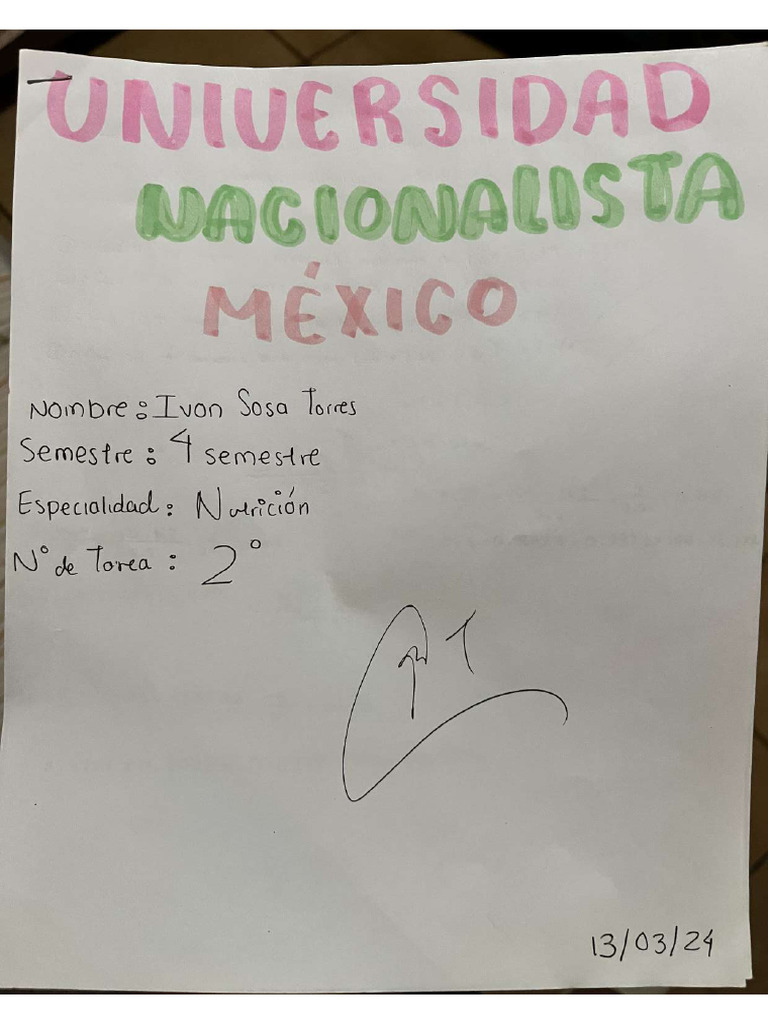 UNIVERSIDAD
NACIONALISTA
MÉXICO
Nombre: Ivon Sosa Torres
Semestre: 4 semestre
Especialidad: Nutrición
N° de Tarea: 2°
13/03/24